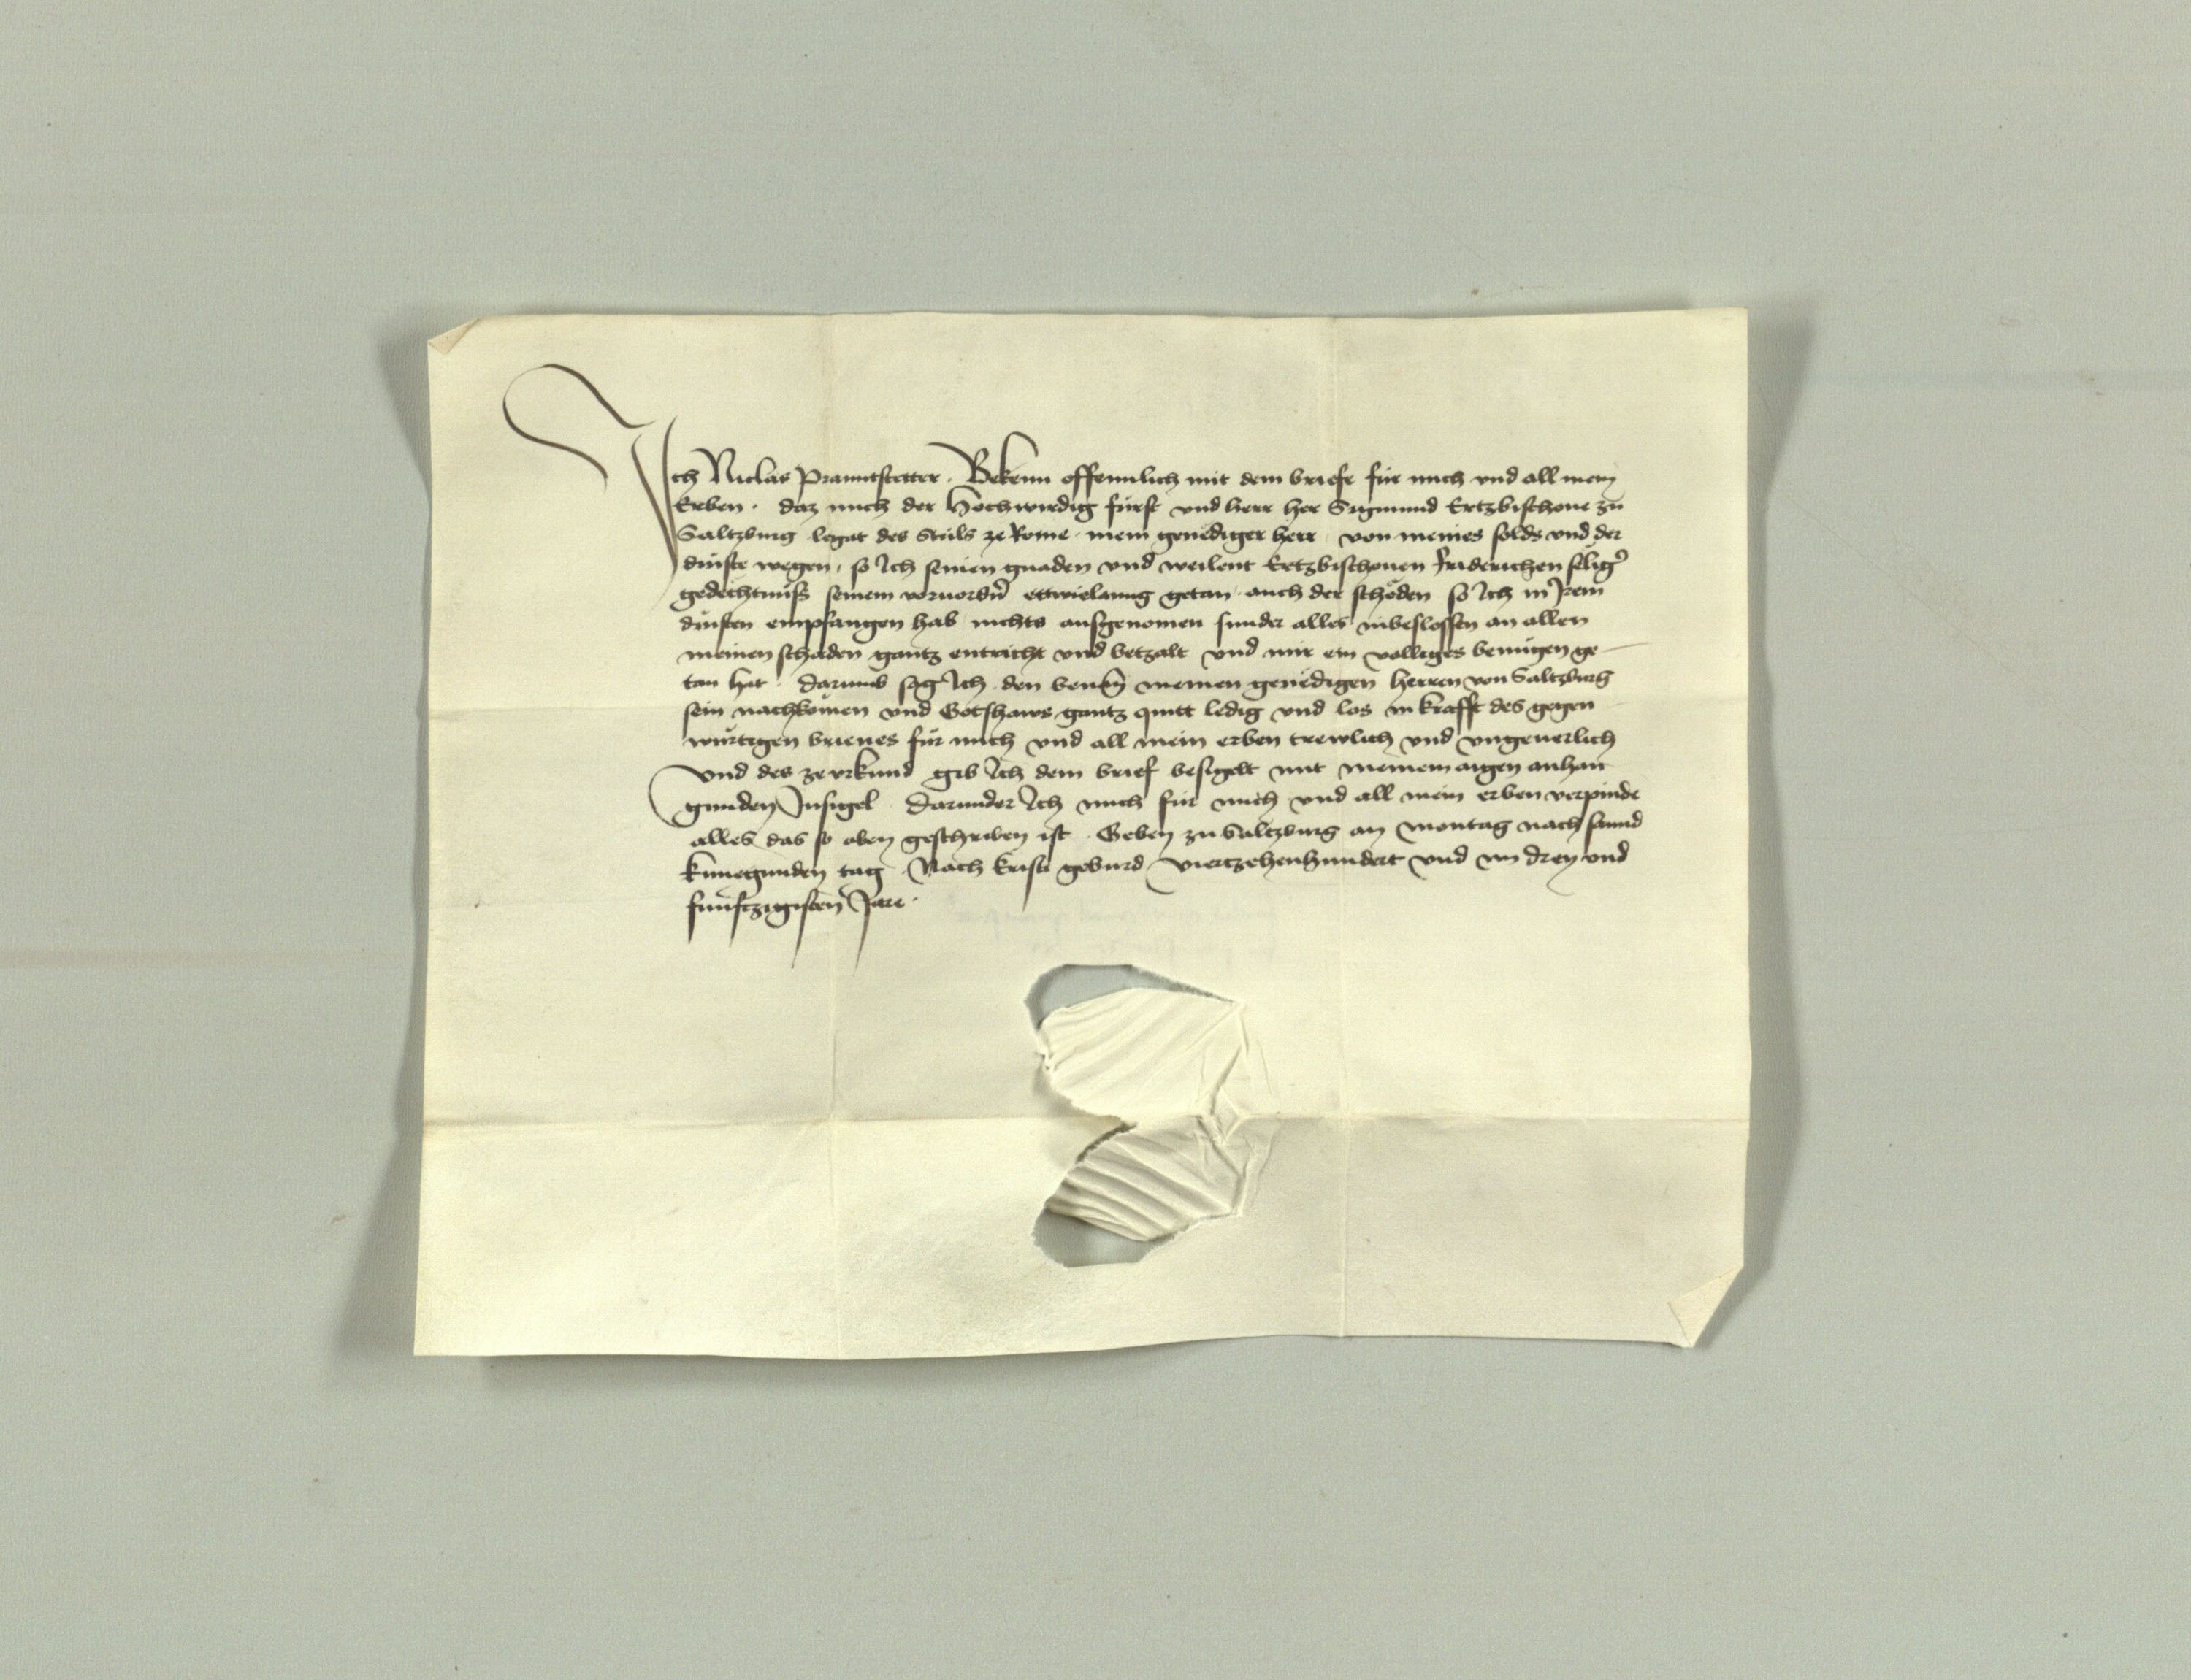 Ich Niclas Pranntstetter. Bekenn offennlich mit dem briefe für mich vnd all mein
Erben. daz mich der Hochwirdig fürst vnd herr her Sigmund Ertzbischoue zu
Saltzburg legat des Stuls ze Rome mein genediger herr von meines solds vnd der
dinste wegen, so Ich seinen gnaden vnd weilent Ertzbischouen Friderichen selig̾
gedechtnüss seinem voruordn̄ ettwielanng getan auch der scheden so Ich in Irem
dinsten emphangen hab nichts ausgenomen sunder alles inbeslossen an allen
meinen schaden gantz entricht vnd betzalt vnd mir ein volliges benügen ge-
tan hat. Darumb sag Ich den ben̄n meinen genedigen herren von Saltzburg
sein nachkömen vnd Gotshaws gantz quitt ledig vnd los in krafft des gegen
würtigen brieues für mich vnd all mein erben trewlich vnd vngeuerlich
Vnd des ze vrkund gib Ich dem brief besigelt mit meinem aigen anhan
gunden Insigel darunder Ich mich für mich vnd all mein erben verpinde
alles das so oben geschriben ist. Geben zu Saltzburg an Montag nach sannd
Kunegunden tag. Nach Kristi geburd viertzehenhundert vnd im drey vnd
fünftzigisten Jare.